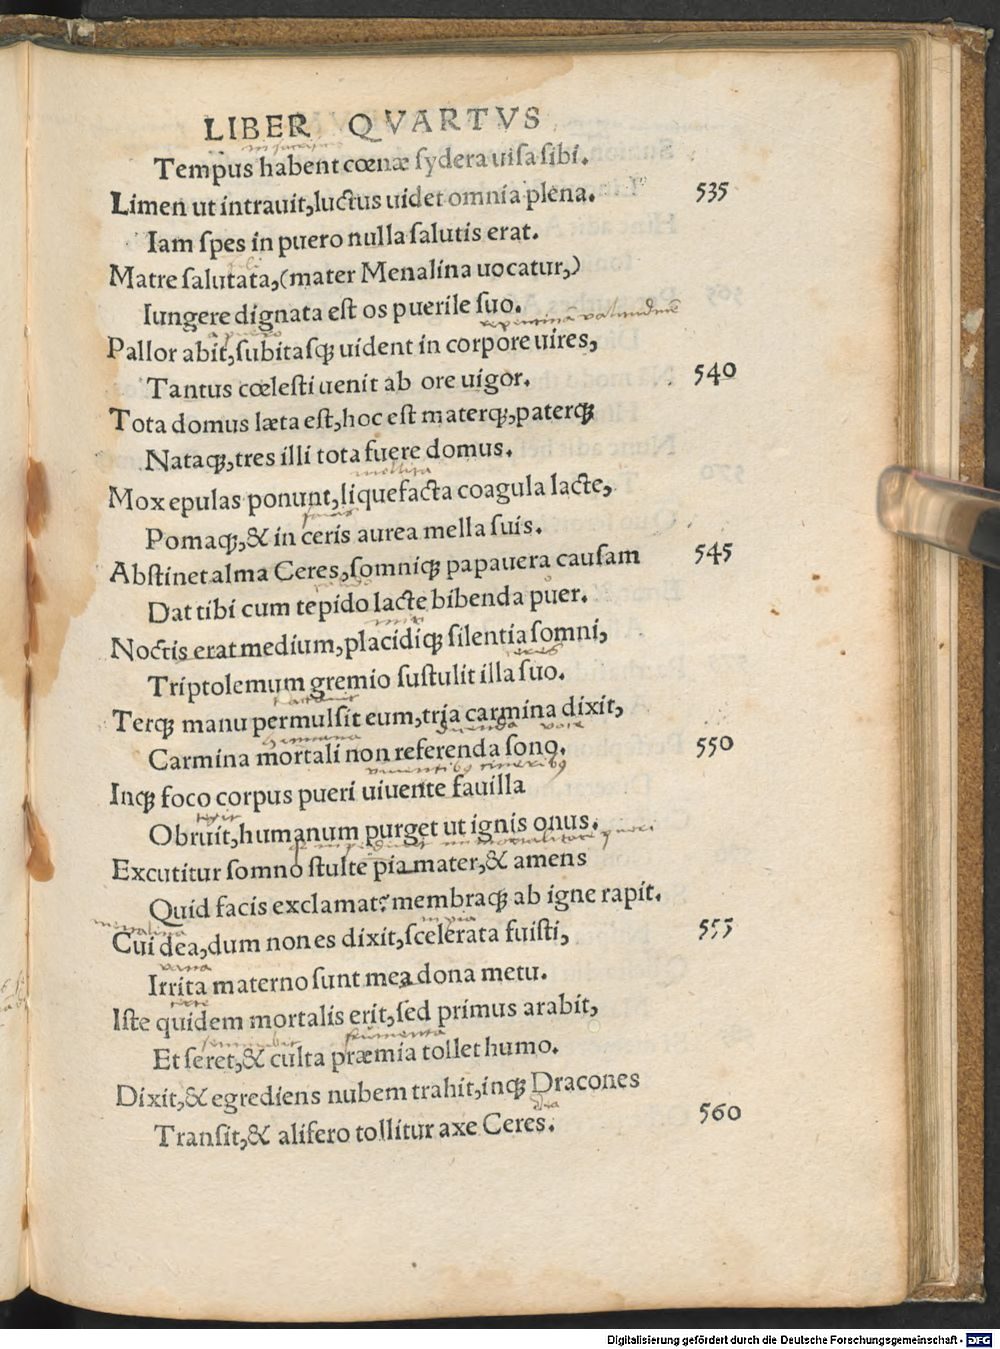 LIBER QVARTVS
Tempus habent cœnæ sydera uisa sibi.
Limen ut intrauit, luctus uidet omnia plena. 535
Iam spes in puero nulla salutis erat.
Matre salutata, (mater Menalina uocatur,)
Iungere dignata est os puerile suo.
repentina valitudine
Pallor abit, subitasq; uident in corpore uires,
Tantus cœlesti uenit ab ore uigor. 540
Tota domus læta est, hoc est materq;, paterq;
Nataq;, tres illi tota fuere domus.
mollita
Mox epulas ponunt, liquefacta coagula lacte,
fauis
Pomaq;, & in ceris aurea mella suis.
Abstinet alma Ceres, somniq; papauera causam 545
Dat tibi cum tepido lacte bibenda puer.
Noctis erat medium, placidiq; silentia somni,
ceres
Triptolemum gremio sustulit illa suo.
Terq; manu permulsit eum, tria carmina dixit,
humana dicenda voce
Carmina mortali non referenda sono. 550
viuentibq cineribq
Inq; foco corpus pueri uiuente fauilla
tegit
Obruit, humanum purget ut ignis onus.
impediuit immortalitatē pueri
Excutitur somno stulte pia mater, & amens
Quid facis exclamat? membraq; ab igne rapit.
menalina impia
Cui dea, dum non es dixit, scelerata fuisti, 555
vana
Irrita materno sunt mea dona metu.
certe
Iste quidem mortalis erit, sed primus arabit,
seminabit frumenta
Et seret, & culta præmia tollet humo.
Dixit, & egrediens nubem trahit, inq; Dracones
dea
Transit, & alifero tollitur axe Ceres. 560
Digitalisierung gefördert durch die Deutsche Forschungsgemeinschaft - DFG